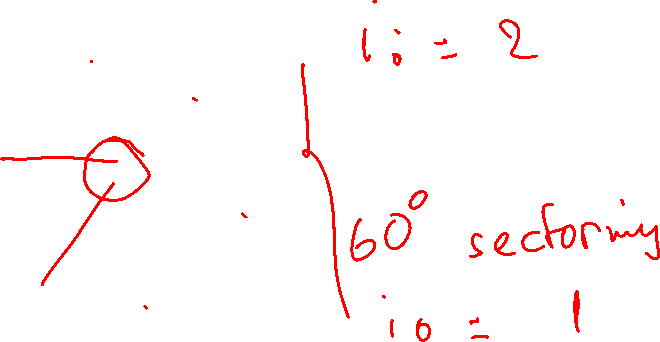 io = 2
60° sectoring
io = 1